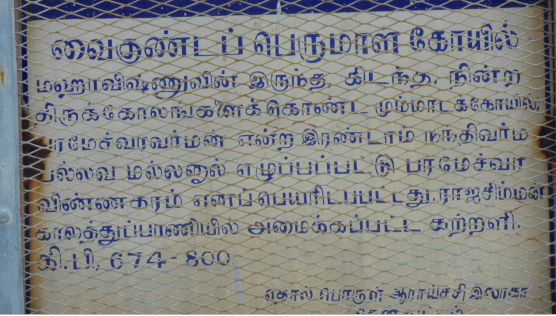 வைகுண்டப் பெருமாள் கோயில்
மஹாவிஷ்ணுவின் இருந்த, கிடந்த, நின்ற
திருக்கோலங்களைக் கொண்ட மும்மாடக்கோயில்,
பரமேச்வரவர்மன் என்ற இரண்டாம் நந்திவர்ம
பல்லவ மல்லனால் எழுப்பப்பட்டு பரமேச்வர
விண்ணகரம் எனப்பெயரிடப்பட்டது. ராஜசிம்மன்
காலத்துப்பாணியில் அமைக்கப்பட்ட கற்றளி.
கி.பி. 674-800
தொல் பொருள் ஆராய்ச்சி இலாகா